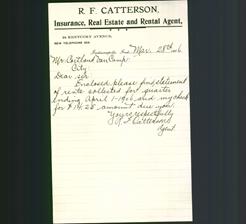 R. F. CATTERSON,
Insurance, Real Estate and Rental Agent,
24 KENTUCKY AVENUE,
NEW TELEPHONE
Indianapolis, Ind. Mar. 28th 1906
Mr. Cortland Van Camp
City
Dear sir
Enclosed please find statement
of rents collected for quarter
ending April 1-1906 and my check
for $14.28 amount due you.
Yours respectfully
R. F. Catterson
Agent